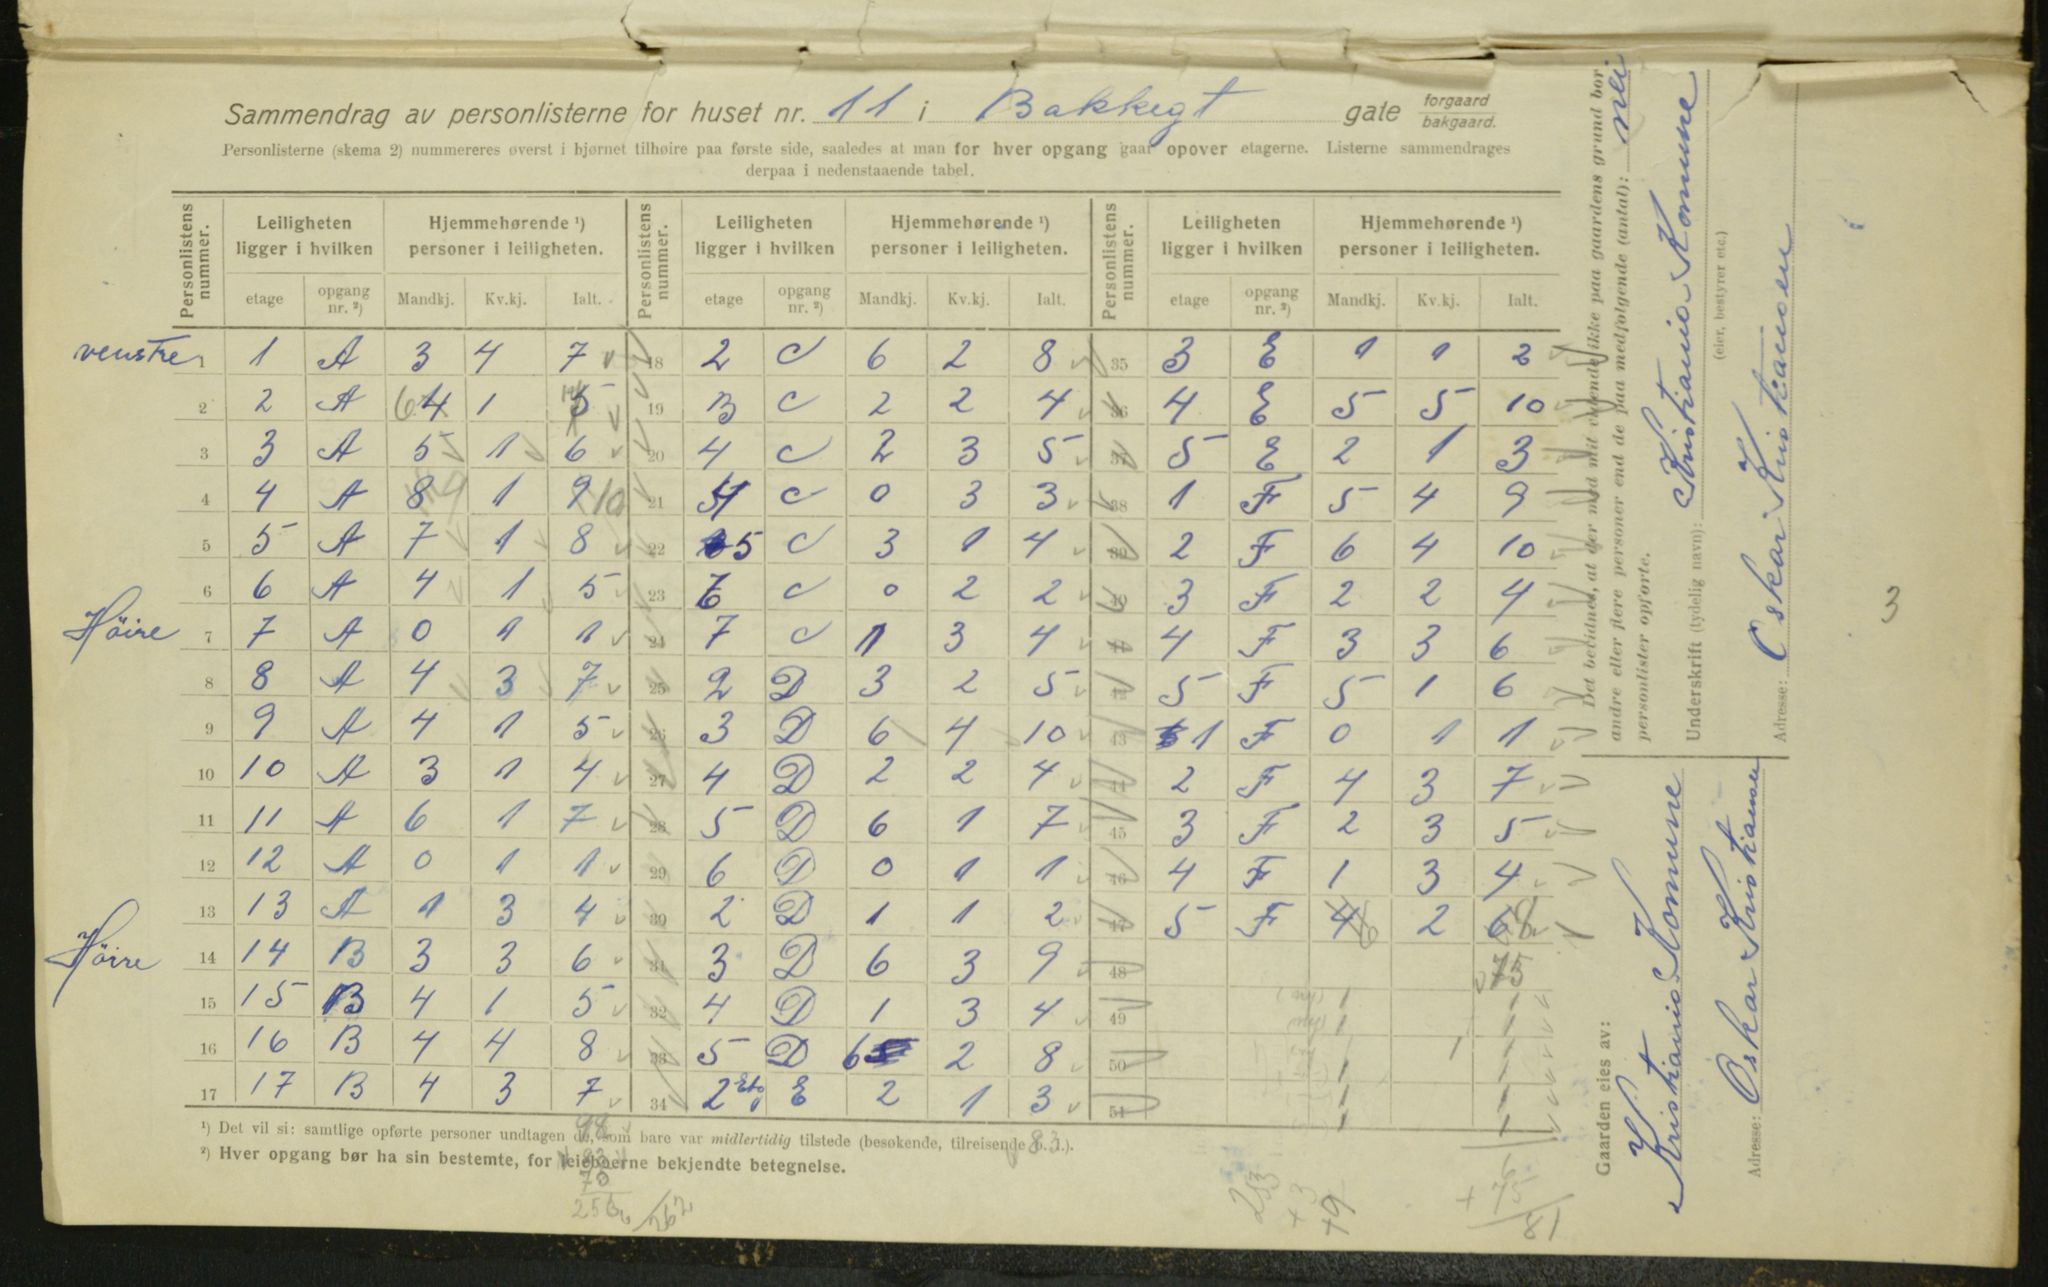 Sammendrag av personlisterne for huset nr. 11 i Bakkegt gate forgaard bakgaard.
Personlisterne (skema 2) nummereres øverst i hjørnet tilhøire paa første side, saaledes at man for hver opgang gaar opover etagerne. Listerne sammendrages
derpaa i nedenstaaende tabel.
Personlistens nummer. Leiligheten ligger i hvilken Hjemmehørende ¹) personer i leiligheten. Personlistens nummer. Leiligheten ligger i hvilken Hjemmehørende ¹) personer i leiligheten. Personlistens nummer. Leiligheten ligger i hvilken Hjemmehørende ¹) personer i leiligheten.
etage opgang nr. ²) Mandkj. Kv.kj. Ialt. etage opgang nr. ²) Mandkj. Kv.kj. Ialt. etage opgang nr. ²) Mandkj. Kv.kj. Ialt.
venstre 1 1 A 3 4 7 18 2 C 6 2 8 35 3 E 1 1 2
2 2 A 6 4 1 5 19 3 C 2 2 4 36 4 E 5 5 10
3 3 A 5 1 6 20 4 C 2 3 5 37 5 E 2 1 3
4 4 A 8 9 1 9 10 21 4 C 0 3 3 38 1 F 5 4 9
5 5 A 7 1 8 22 5 C 3 1 4 39 2 F 6 4 10
6 6 A 4 1 5 23 6 C 0 2 2 40 3 F 2 2 4
Höire 7 7 A 0 1 1 24 7 C 1 3 4 41 4 F 3 3 6
8 8 A 4 3 7 25 2 D 3 2 5 42 5 F 5 1 6
9 9 A 4 1 5 26 3 D 6 4 10 43 1 F 0 1 1
10 10 A 3 1 4 27 4 D 2 2 4 44 2 F 4 3 7
11 11 A 6 1 7 28 5 D 6 1 7 45 3 F 2 3 5
12 12 A 0 1 1 29 6 D 0 1 1 46 4 F 1 3 4
13 13 A 1 3 4 30 2 D 1 1 2 47 5 F 4 6 2 6 8
Höire 14 14 B 3 3 6 31 3 D 6 3 9 48 75
15 15 B 4 1 5 32 4 D 1 3 4 49 1 1
16 16 B 4 4 8 33 5 D 6 2 8 50 1 1
17 17 B 4 3 7 34 2 Etg E 2 1 3 51 1 1
¹) Det vil si: samtlige opførte personer undtagen de, som bare var midlertidig tilstede (besøkende, tilreisende o. l.).
²) Hver opgang bør ha sin bestemte, for leieboerne bekjendte betegnelse.
98
83
75
256
262
83
253
+ 3
+ 9
6
+ 75
81
Det bevidnes, at der med mit vidende ikke paa gaardens grund bor
andre eller flere personer end de paa medfølgende (antal):
personlister opførte.
Underskrift (tydelig navn): Kristiania Komune
(eier, bestyrer etc.)
Adresse: Oskar Kristiansen
Gaarden eies av: Kristiania Komune
Adresse: Oskar Kristiansen
3